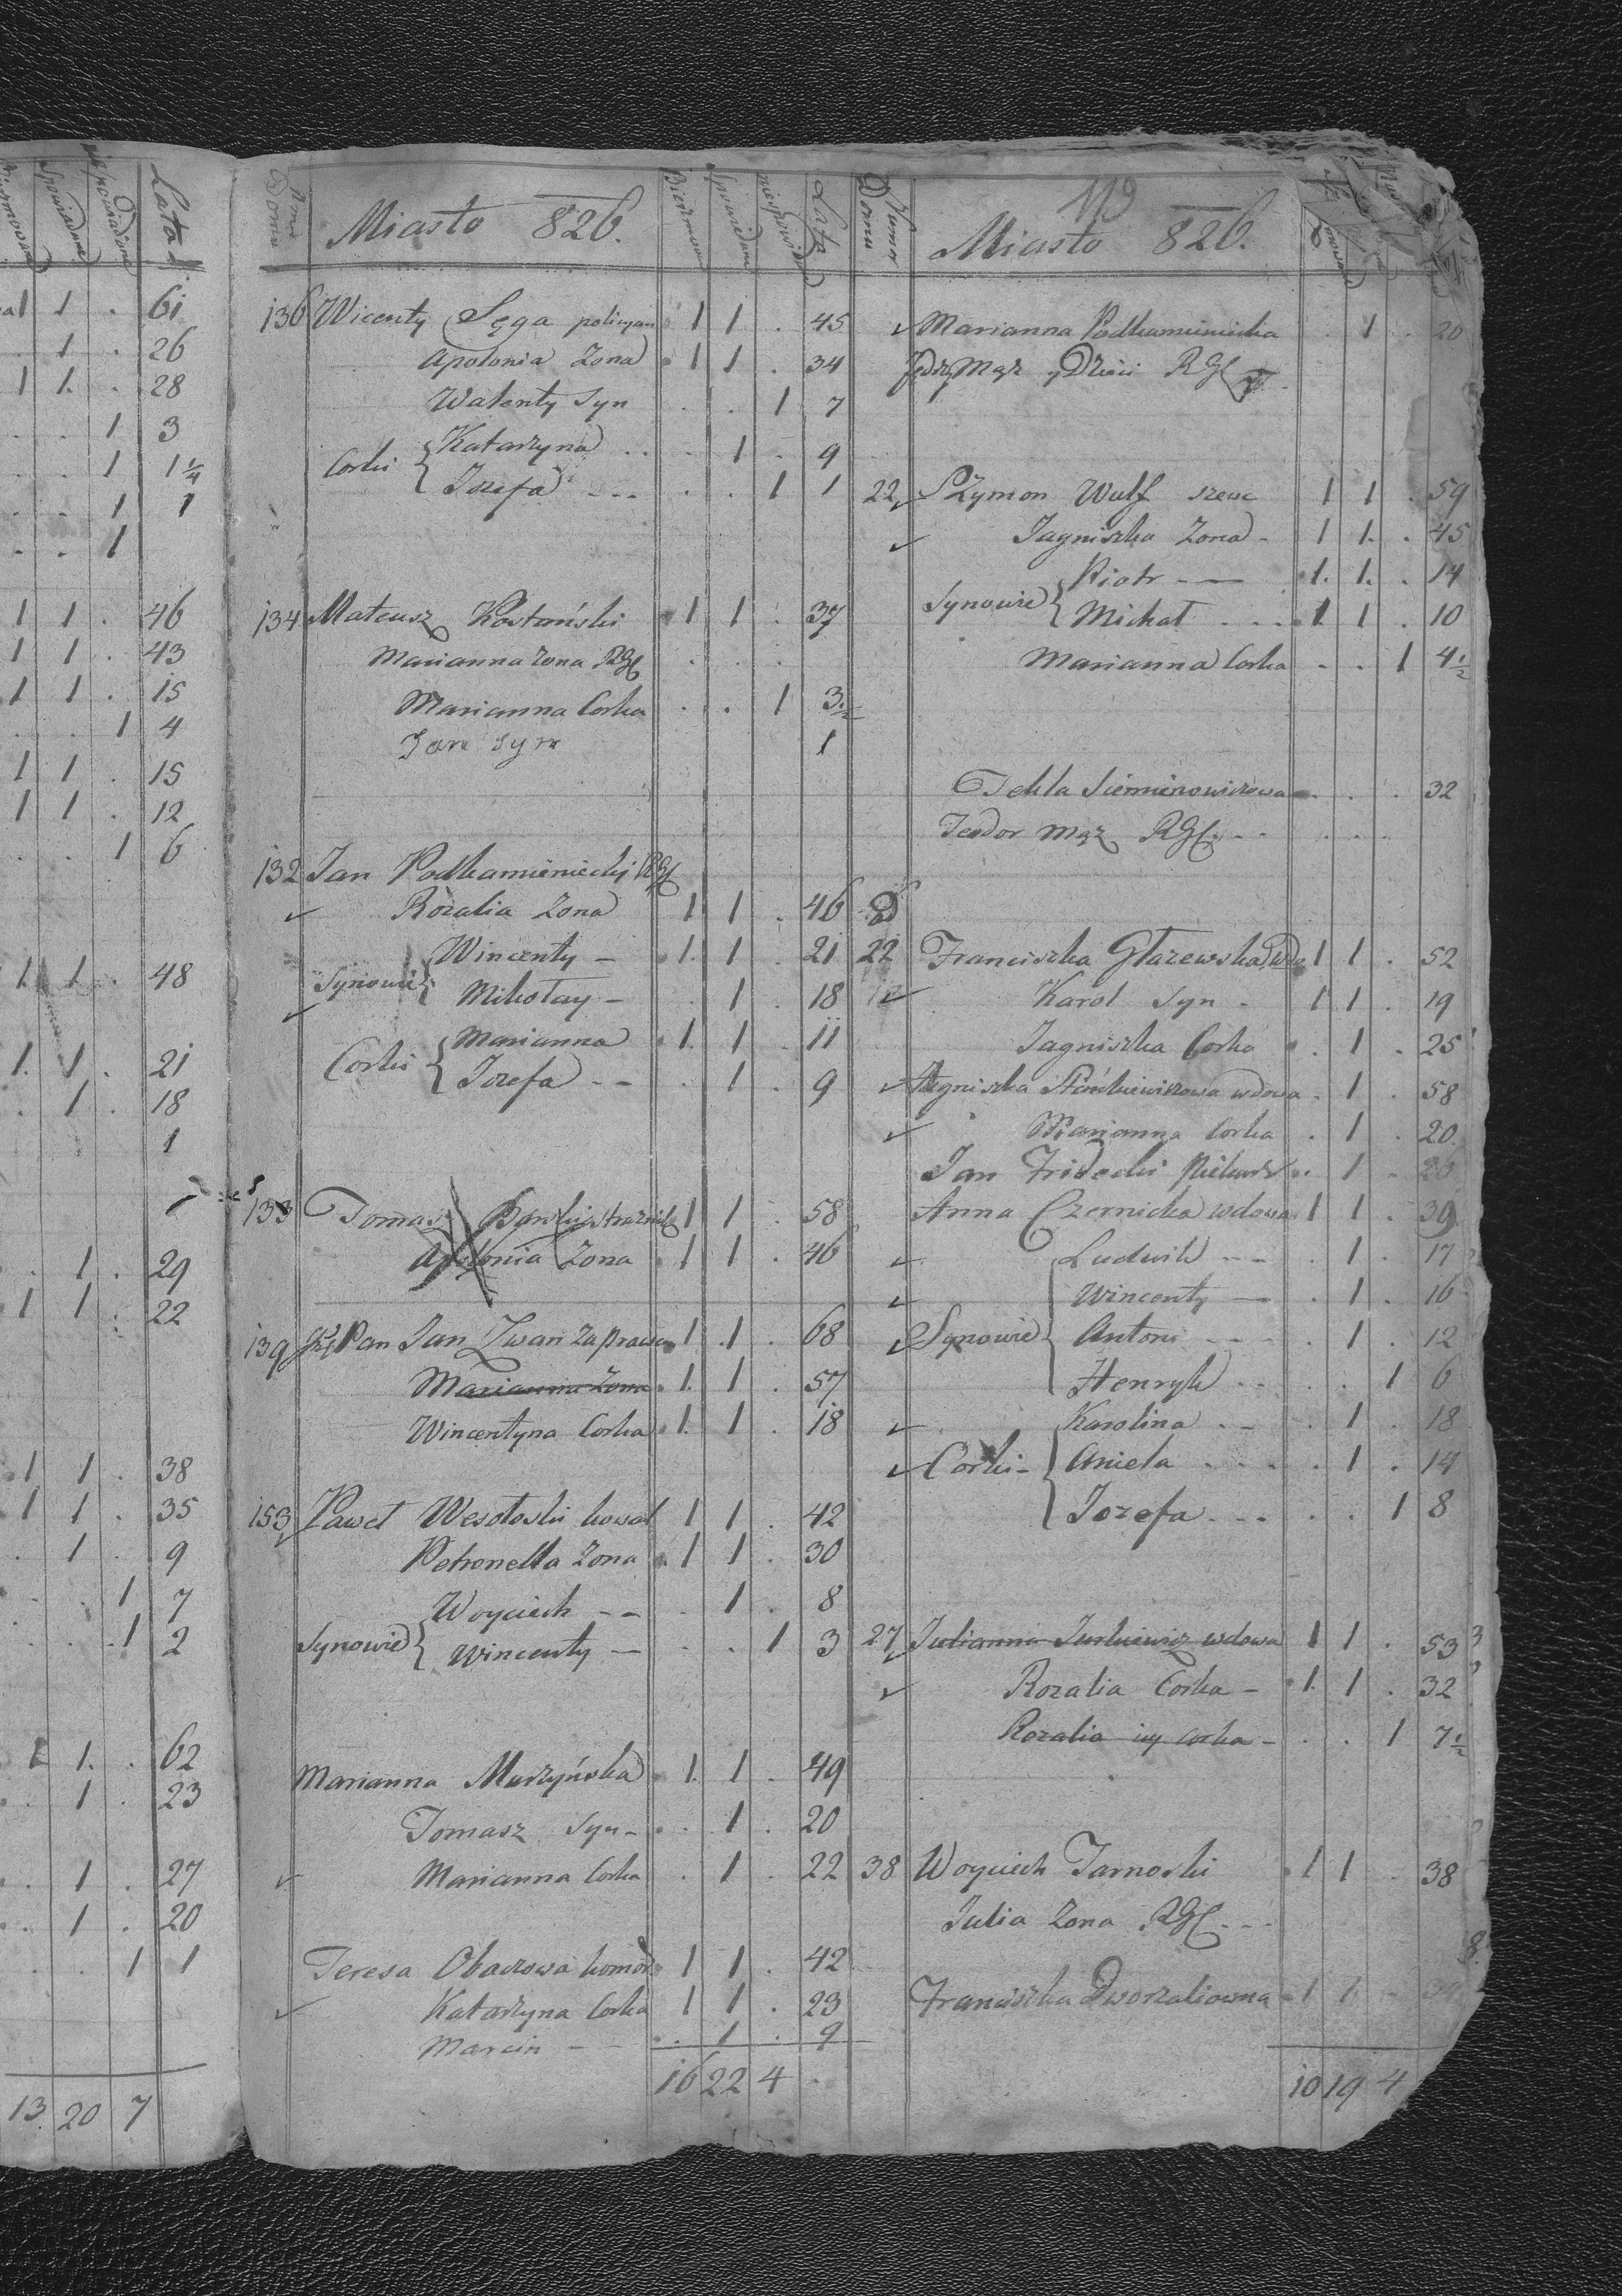 Lata
1 . 61
. 1 . 26
1 1. . 28
. . 1 3
. . 1 1 1/4
. . 1 1
. . 1
1 1 . 46
1 1 . 43
1 1 . 15
. . 1 4
1 1 . 15
1 1 . 12
. . 1 6
1 1 . 48
1. 1 . 21
. 1 . 18
1
. 1 . 29
1 1 . 22
1 1 . 38
1 1 . 35
. 1 . 9
. . 1 7
. . 1 2
1 1. . 62
. 1 . 23
. 1 . 27
. 1 . 20
. . 1 1
13 20 7
Domu Miasto 826. Lata
136 Wicenty Sęga 1 1 . 45
Apolonia Zona 1 1 . 34
Walenty Syn . . 1 7
Corki { Katarzyna . . . 1 . 9
Jozefa - - - . . 1 1
134 Mateusz 1 1 . 37
Marianna zona RGl . . .
Marianna Corka . . 1 3 1/2
Jan syn 1
132 Jan Podkamieniecki RGl
Rozalia Zona 1 1 . 46
Synowie { Wincenty - 1. 1 . 21
Mikołay - . 1 . 18
Corki { Marianna 1. 1 . 11
Jozefa - - . 1 . 9
133 Tomasz 1 1 . 58
Apolonia Zona 1 1 . 46
139 Pan Jan 1 . 1 . 68
Marianna Zona 1. 1 . 57
Wincentyna Corka 1. 1 . 18
153 Paweł Wesołoski kowal 1 1 . 42
Petronella Zona 1 1 . 30
Synowie { Woyciech - - . 1 . 8
Wincenty - . . 1 3
Marianna Murzyńska 1. 1 . 49
Tomasz Syn - . 1 . 20
Marianna Corka . 1 . 22
Teresa komor 1 1 . 42
Katarzyna Corka 1 1 . 23
Marcin - - . 1 . 9
16 22 4
Numer Domu Miasto 826. 113
Marianna Podkamieniecka . 1 . 20
Mąż y Dzieci RGl
22 Szymon Wulf szewc 1 1 . 59
Jagniszka Zona - 1 1. . 45
Synowie { Piotr - 1. 1. . 14
Michał . . . 1 1 . 10
Marianna Corka . . 1 4 1/2
Tekla Siemienowiczowa . . . 32
Teodor mąż RGl - - . . .
22 Franciszka Głazewska wdo 1 1 . 52
Karol Syn - 1 1 . 19
Jagniszka Corka . 1 . 25
Jagniszka wdowa . 1 . 58
Marianna Corka . 1 . 20.
Jan . 1 . 26
Anna Czernicka wdowa 1 1 . 39
Synowie { Ludwik - - . 1 . 17
Wincenty - . 1 . 16
Antoni - - . 1 . 12
Henryk . . . . 1 6
Corki - { Karolina . . . 1 . 18
Aniela . . . . 1 . 14
Jozefa . . . . . 1 8
27 Julianna Jurkiewicz wdowa 1 1 . 53
Rozalia Corka - 1. 1 . 32
Rozalia iey Corka - . . 1 7 1/2
38 Woyciech Tarnoski 1 1 . 38
Julia Zona RGl - - -
Franciszka Dworzakowna 1 1
10 19 4